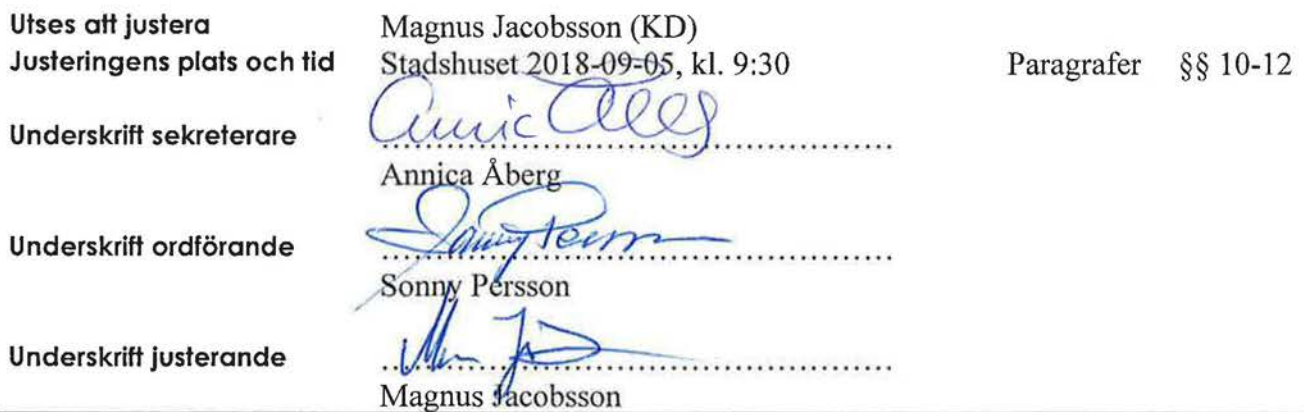 Utses att justera Magnus Jacobsson (KD)
Justeringens plats och tid Stadshuset 2018-09-05, kl. 9:30 Paragrafer §§ 10-12
Underskrift sekreterare
Annica Åberg
Underskrift ordförande
Sonny Persson
Underskrift justerande
Magnus Jacobsson